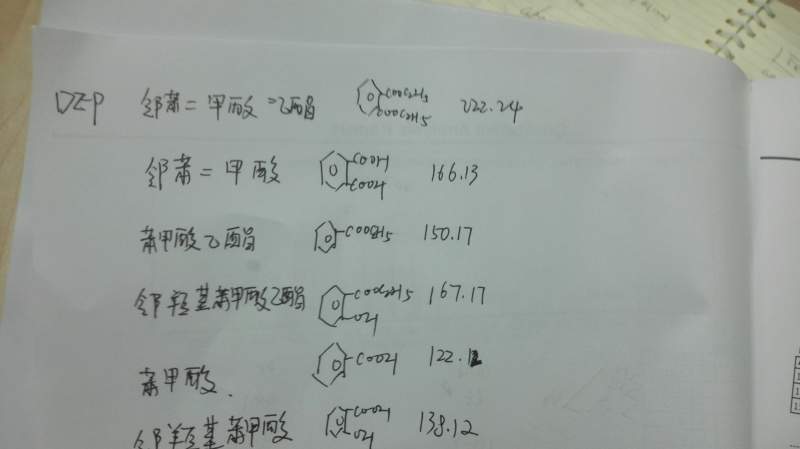 DZP 邻苯二甲酸二乙酯 COOC2H5 COOC2H5 222.24
邻苯二甲酸 COOH COOH 166.13
苯甲酸乙酯 COOC2H5 150.17
邻羟基苯甲酸乙酯 COOC2H5 OH 167.17
苯甲酸. COOH 122.12
邻羟基苯甲酸 COOH OH 138.12